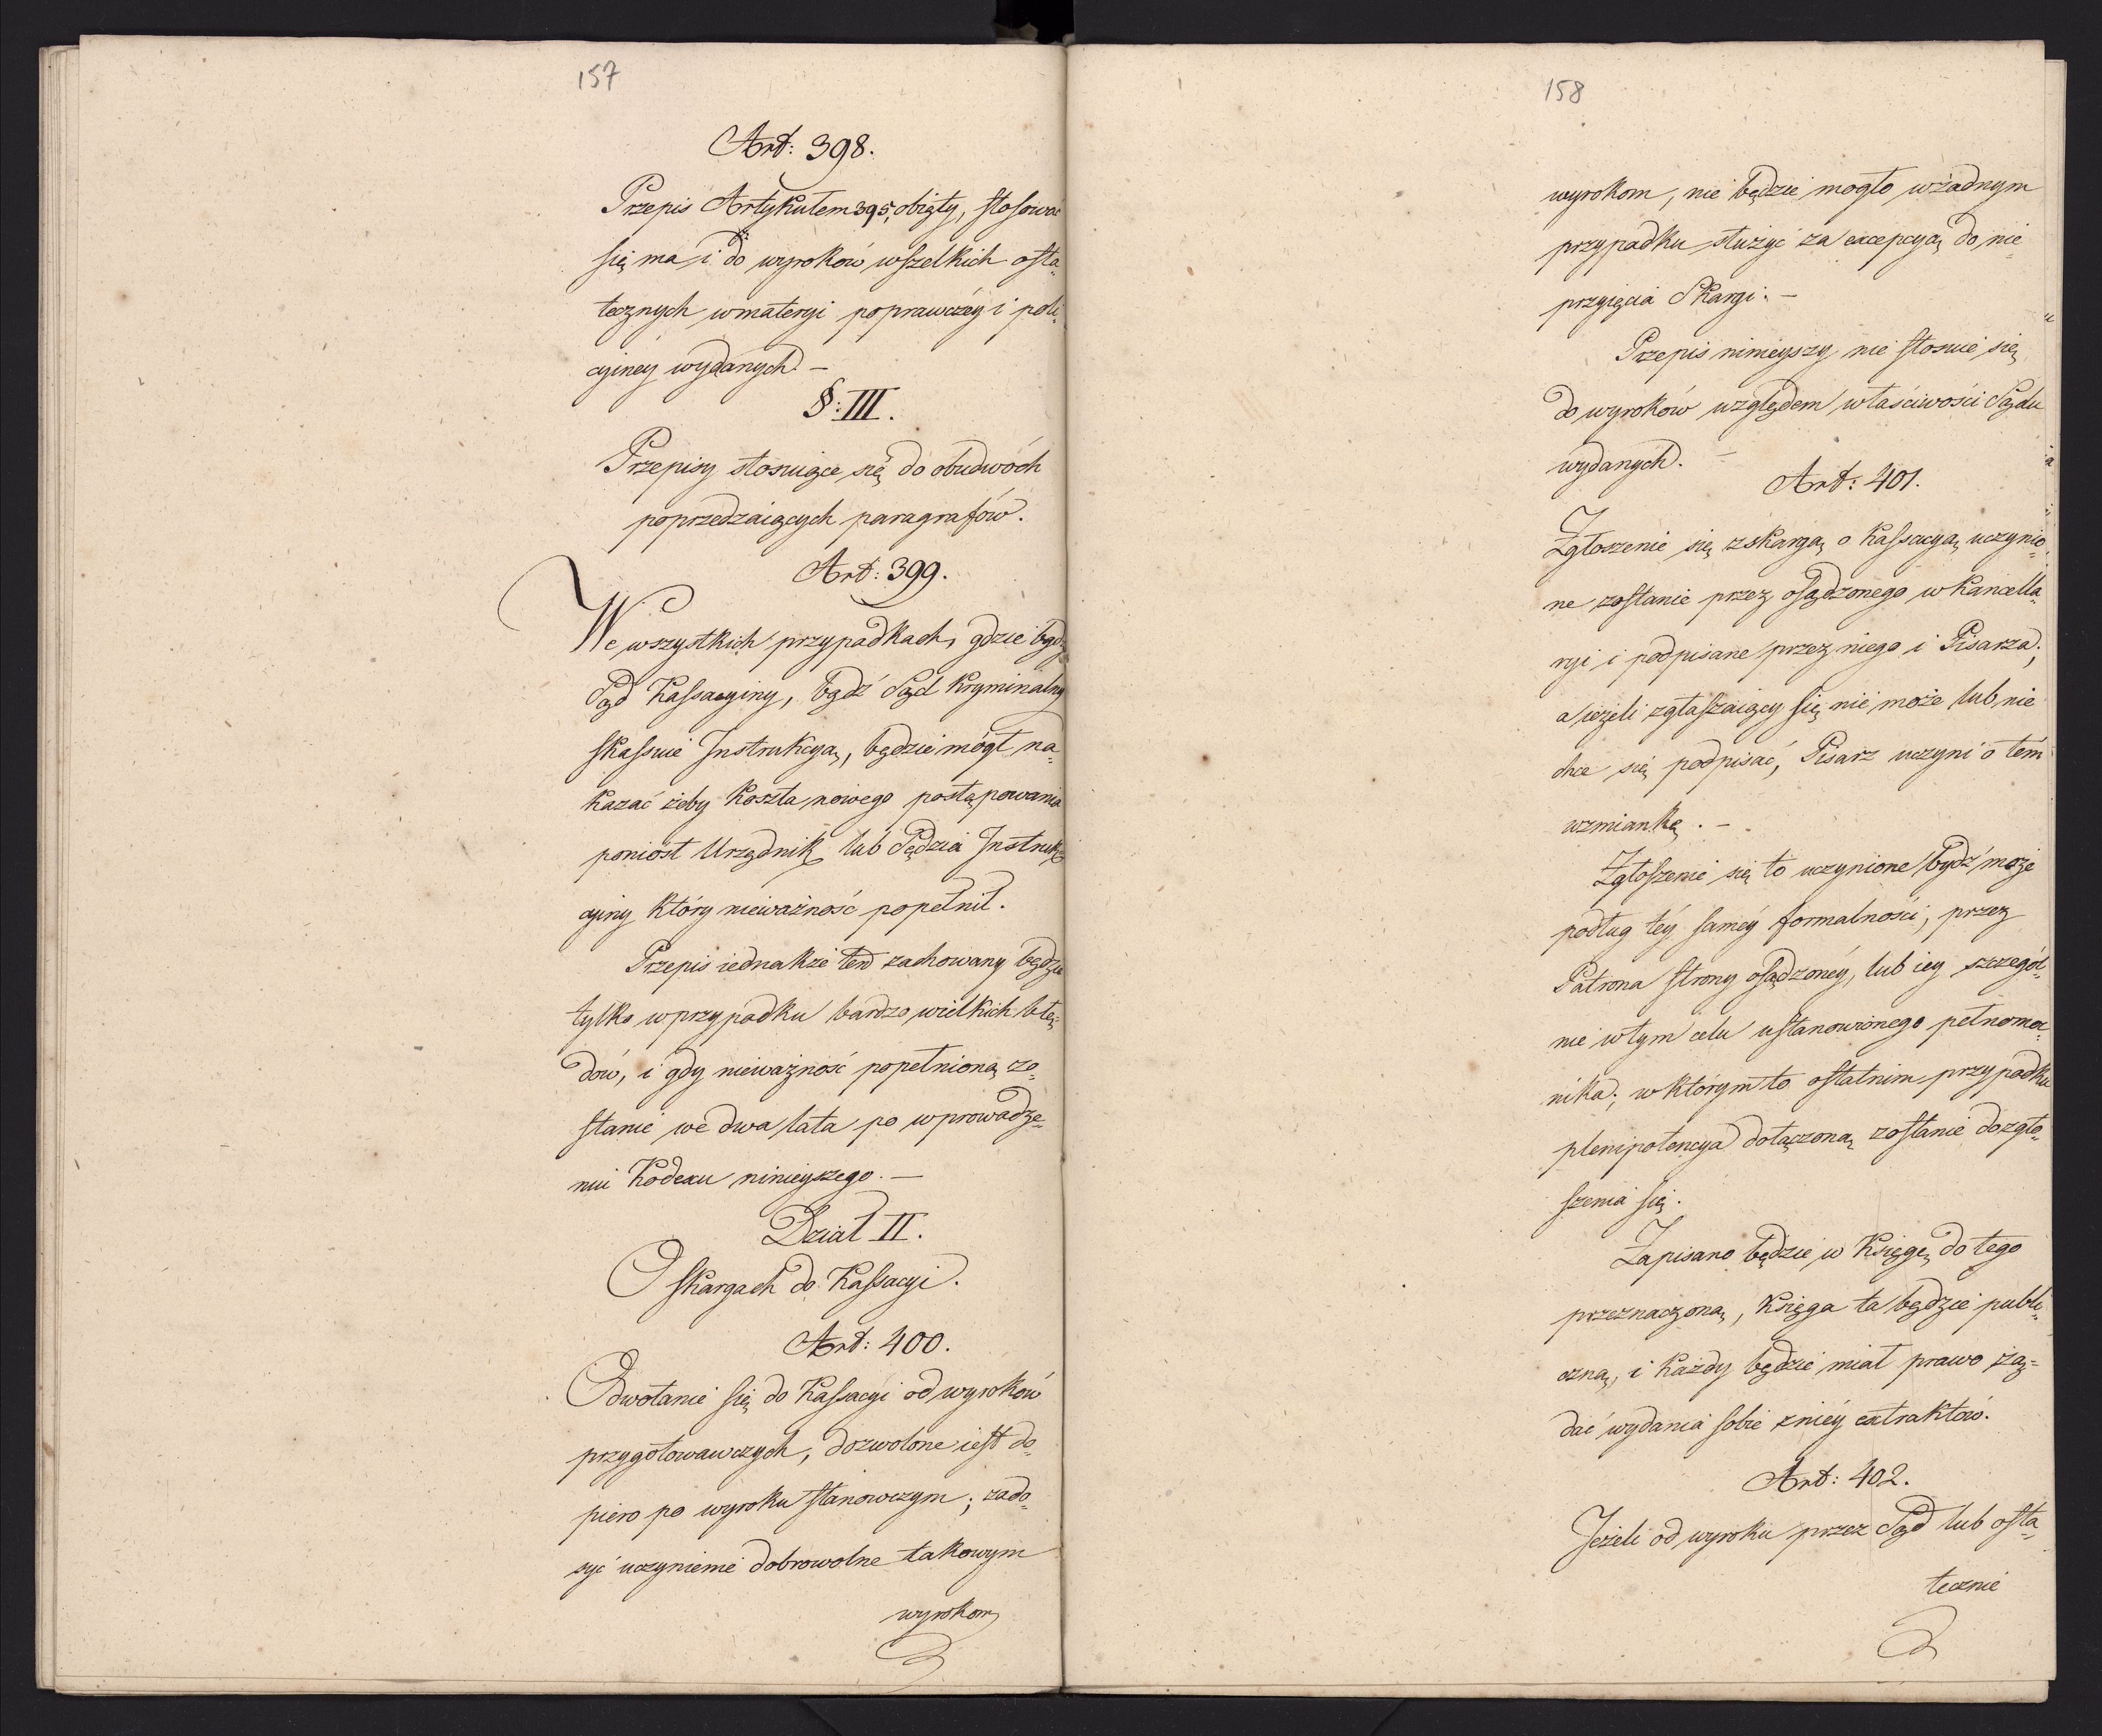 157
Art: 398.
Przepis Artykułem 395, obięty, stosować
się ma i do wyroków wszelkich osta-
tecznych w materyi poprawczéy i poli-
cyinéy wydanych. —
§: III.
Przepisy stosuiące się do obudwóch
poprzedzaiących paragrafów.
Art: 399.
We wszystkich przypadkach, gdzie bądź
Sąd Kassacyiny, bądź Sąd Kryminalny
skassuie Instrukcyą, będzie mógł na-
kazać żeby koszta nowego postępowania
poniósł Urzędnik lub Sędzia Instruk-
cyiny który nieważność popełnił.
Przepis iednakże ten zachowany będzie
tylko w przypadku bardzo wielkich błę-
dów, i gdy nieważność popełnioną zo-
stanie we dwa lata po wprowadze-
niu Kodexu ninieyszego. —
Dział II.
O skargach do Kassacyi.
Art: 400.
Odwołanie się do Kassacyi od wyroków
przygotowawczych, dozwolone iest do-
piero po wyroku stanowczym; zado-
syć uczynienie dobrowolne takowym
wyrokom
158
wyrokom, nie będzie mogło w żadnym
przypadku służyć za excepcyą do nie-
przyięcia Skargi. —
Przepis ninieyszy nie stosuie się
do wyroków względem właściwości Sądu
wydanych. —
Art: 401.
Zgłoszenie się z skargą o Kassacyą uczynio-
ne zostanie przez osądzonego w Kancella-
ryi i podpisane przez niego i Pisarza;
a ieżeli zgłaszaiący się nie może lub nie
chce się podpisać, Pisarz uczyni o tem
wzmiankę. —
Zgłoszenie się to uczynione bydź może
podług téy saméy formalności, przez
Patrona strony osądzonéy, lub iey szczegól-
nie w tym celu ustanowionego pełnomoc-
nika; w którym to ostatnim przypadku
plenipotencya dołączoną zostanie do zgło-
szenia się.
Zapisano będzie w Księgę do tego
przeznaczoną, Księga ta będzie publi-
czną, i każdy będzie miał prawo żą-
dać wydania sobie z niéy extraktów.
Art: 402.
Jeżeli od wyroku przez Sąd lub osta-
tecznie